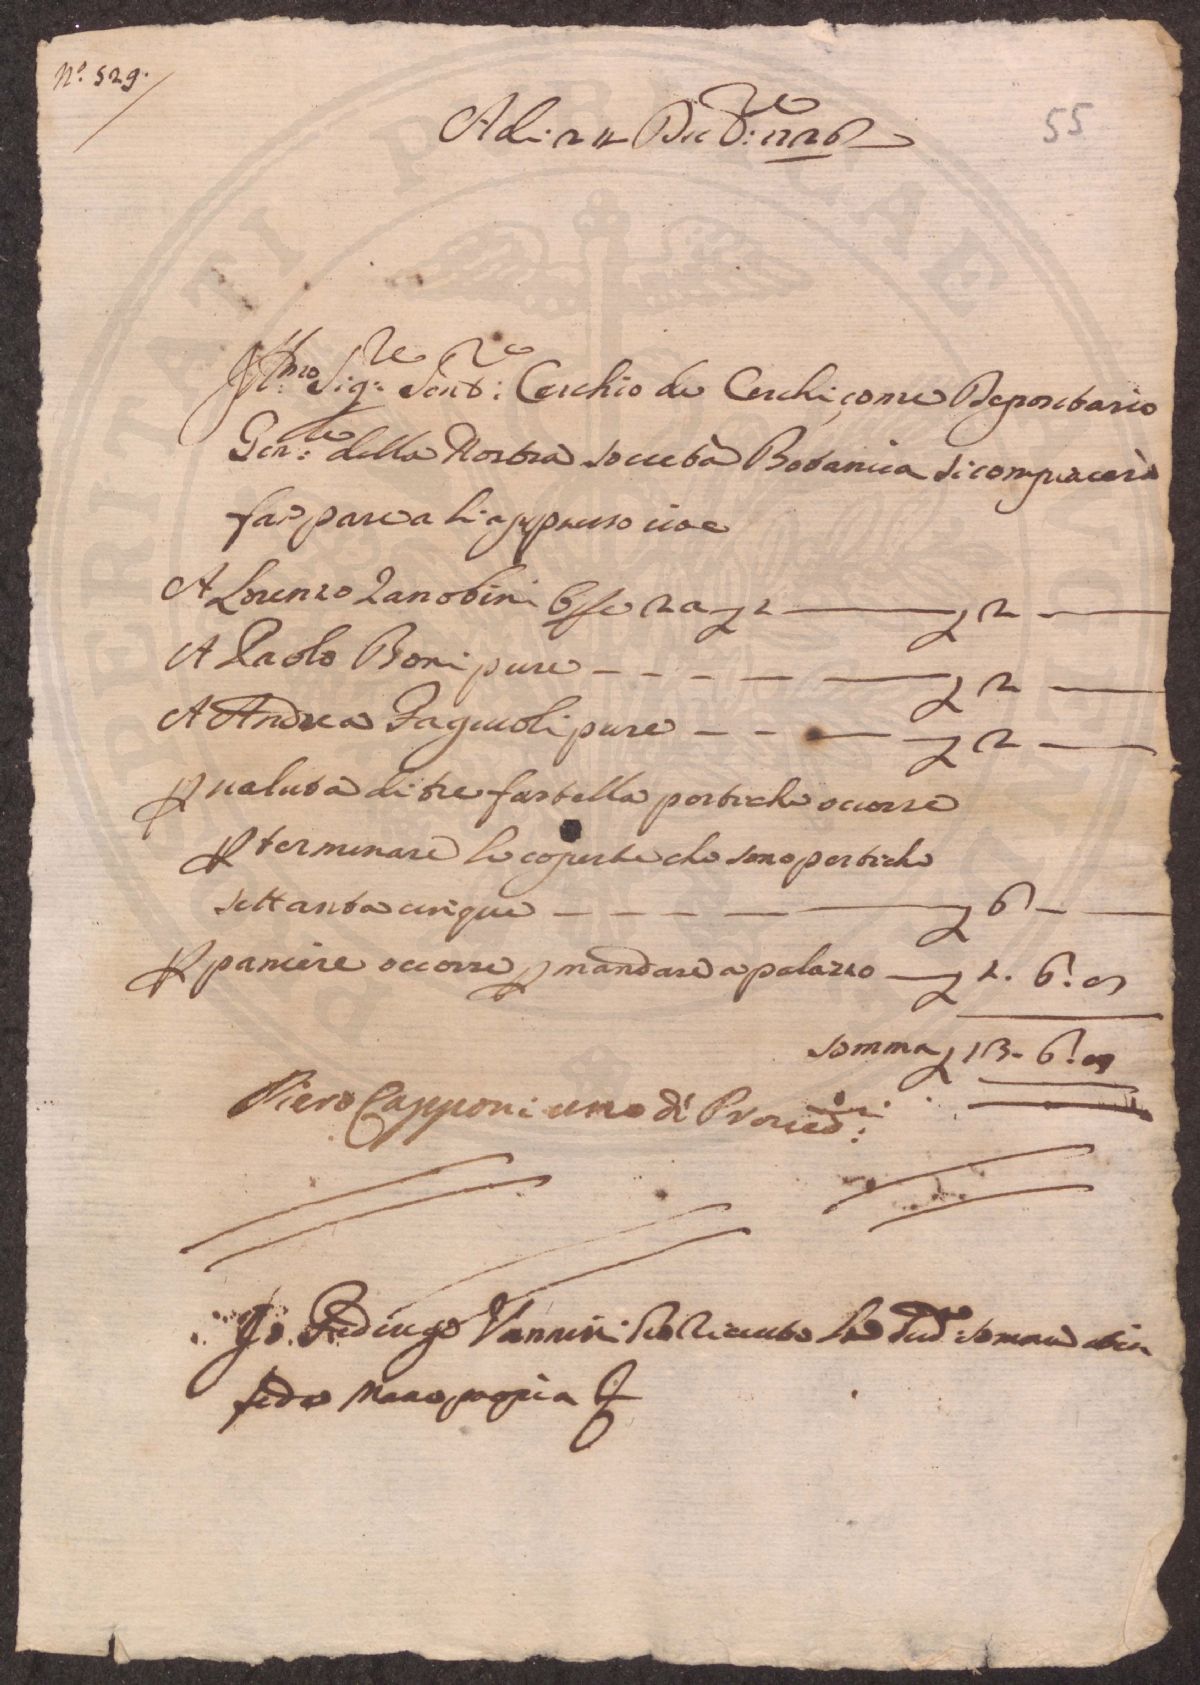 N.º 529.
55
Adi: 24 Dic.bre: 1726
Ill:mo Sig:re Sen:re Cerchio de Cerchi come Depositario
Gen:le della Nostra società Botanica si compiacerà
far pare a li appresso cioè
A Lorenzo Zanobini 2 a 2 2
A Paolo Boni pure 2
A Andrea Fagiuoli pure 2
valuta di tre fastella pertiche occorse
terminare le coperte che sono pertiche
settanta cinque 6
paniere occorse mandare a palazzo 1. 6. 8
somma 13. 6. 8
Piero Capponi uno de Proved:ri
Io Vannini ho riceuto la sud:a somma et in
fede Mano propria
PUBLICAE